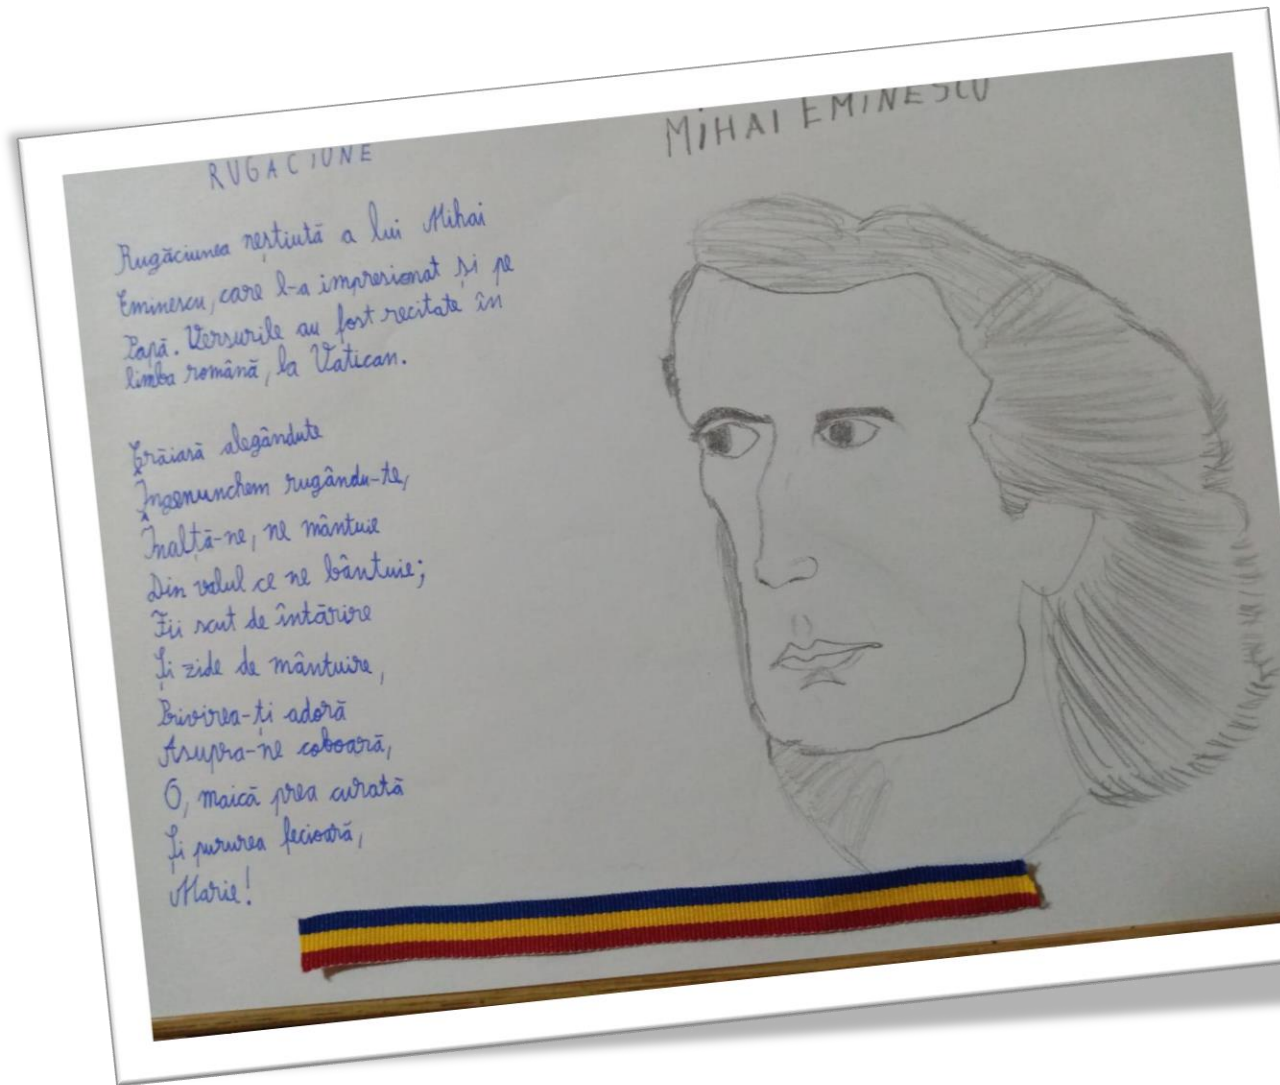 RUGACIUNE
MiHAI EMINESCU
Rugăciunea neștiută a lui Mihai
Eminescu, care l-a impresionat și pe
Papă. Versurile au fost recitate în
limba română, la Vatican.
Crăiasă alegându-te
Îngenunchem rugându-te,
Înalță-ne, ne mântuie
Din valul ce ne bântuie;
Fii scut de întărire
Și zide de mântuire,
Privirea-ți adoră
Asupra-ne coboară,
O, maică prea curată
Și pururea fecioară,
Marie!